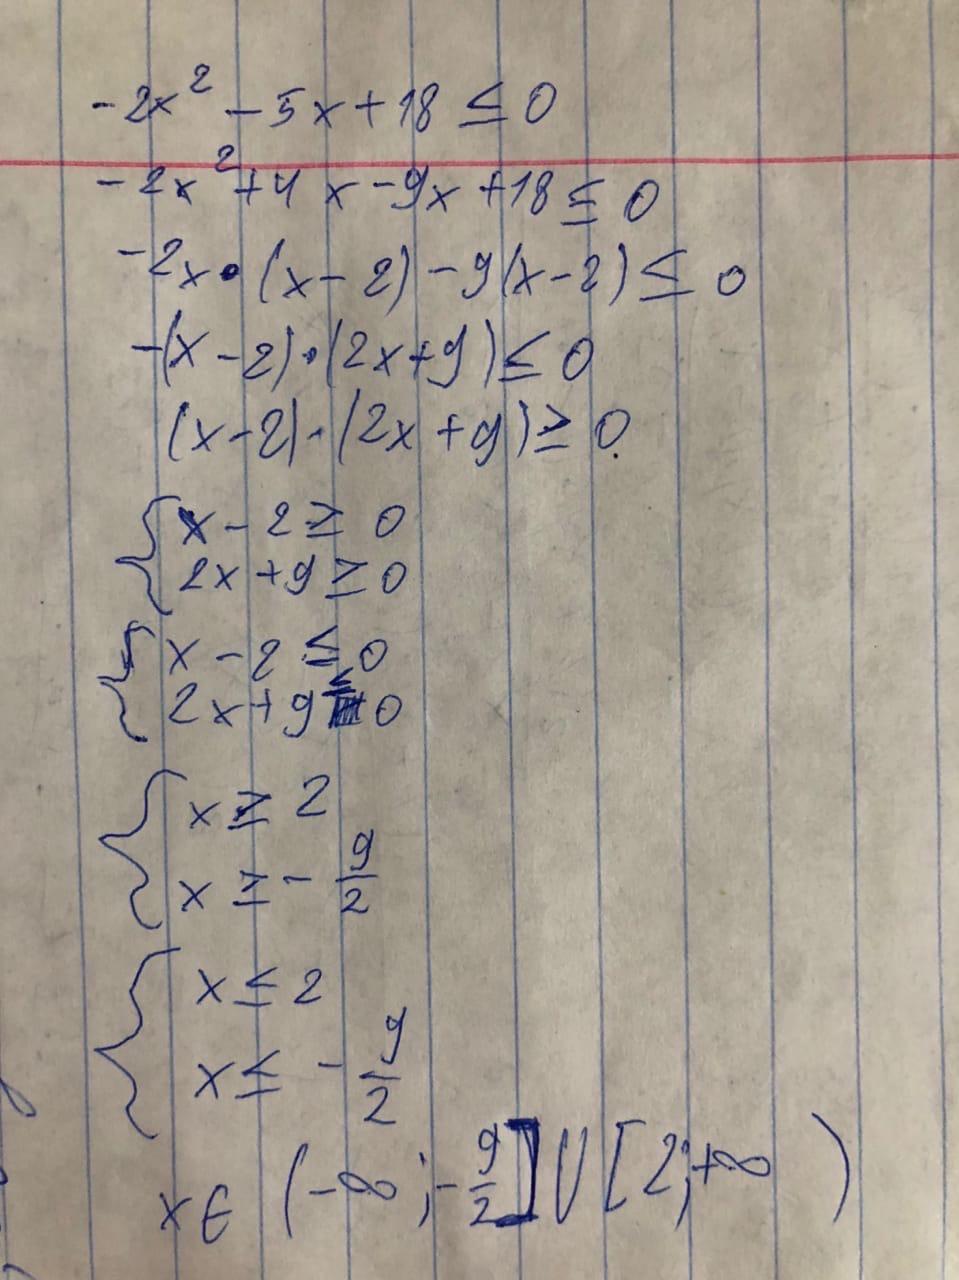 -2x² - 5x + 18 ≤ 0
-2x² + 4x - 9x + 18 ≤ 0
-2x • (x - 2) - 9(x - 2) ≤ 0
-(x - 2) • (2x + 9) ≤ 0
(x - 2) · (2x + 9) ≥ 0.
{ x - 2 ≥ 0
2x + 9 ≥ 0
{ x - 2 ≤ 0
2x + 9 ≤ 0
{ x ≥ 2
x ≥ - 9/2
{ x ≤ 2
x ≤ - 9/2
x ∈ (-∞; -9/2] U [2; +∞)